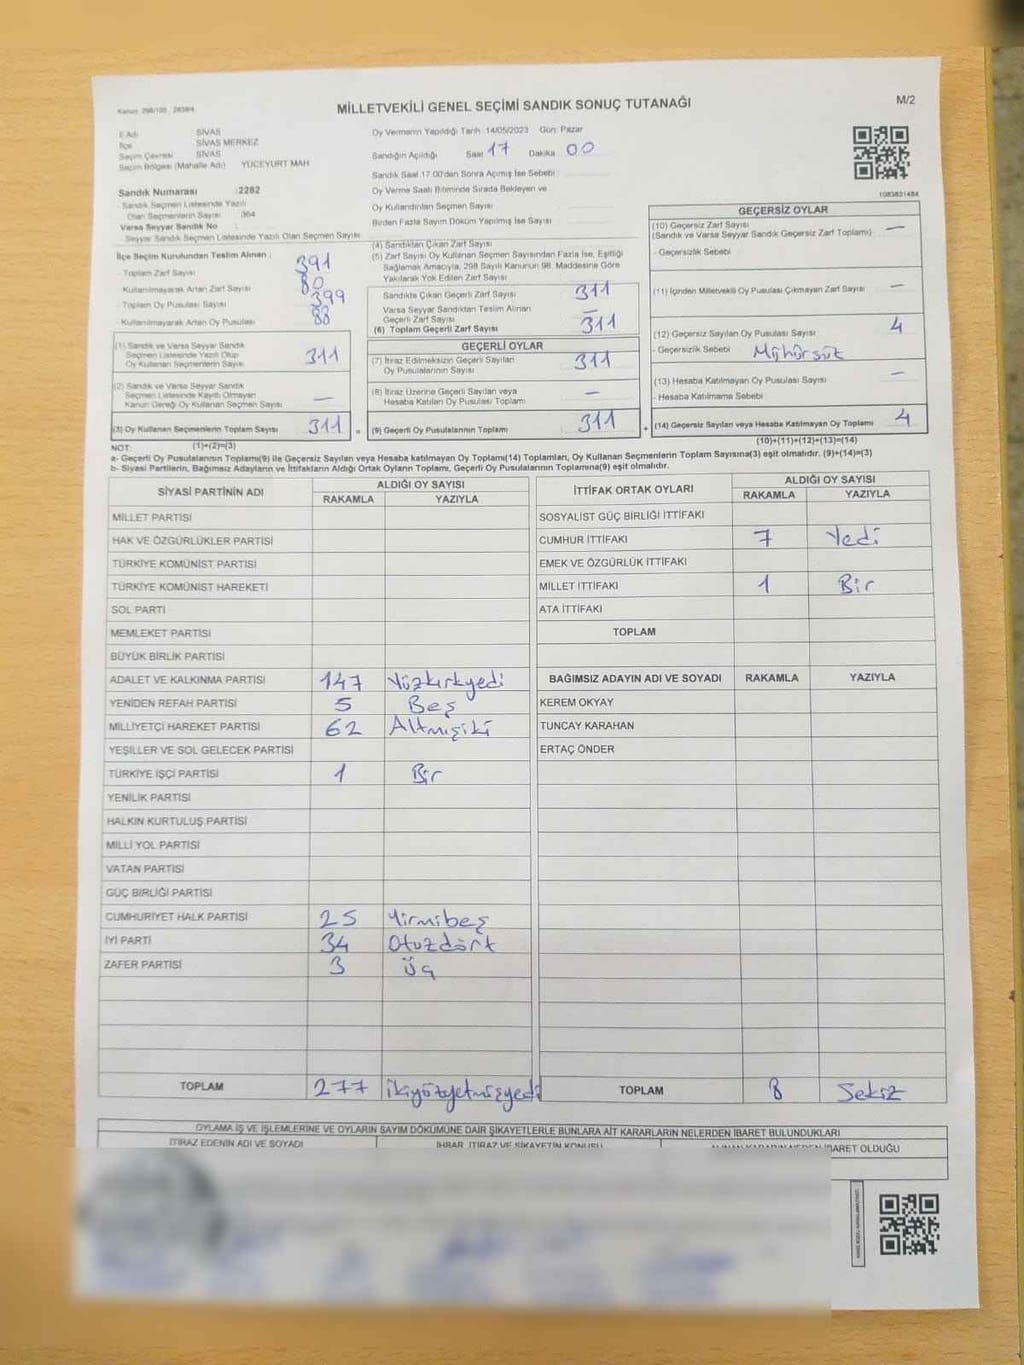 Kanun 298/105 , 2839/4
MİLLETVEKİLİ GENEL SEÇİMİ SANDIK SONUÇ TUTANAĞI
M/2
İl Adı SİVAS
İlçe SİVAS MERKEZ
Seçim Çevresi SİVAS
Seçim Bölgesi (Mahalle Adı) YÜCEYURT MAH
Sandık Numarası :2282
- Sandık Seçmen Listesinde Yazılı
Olan Seçmenlerin Sayısı 364
Varsa Seyyar Sandık No :
- Seyyar Sandık Seçmen Listesinde Yazılı Olan Seçmen Sayısı
Oy Vermenin Yapıldığı Tarih 14/05/2023 Gün: Pazar
Sandığın Açıldığı Saat 17 Dakika 00
Sandık Saat 17.00'den Sonra Açılmış İse Sebebi
Oy Verme Saati Bitiminde Sırada Bekleyen ve
Oy Kullandırılan Seçmen Sayısı
Birden Fazla Sayım Döküm Yapılmış İse Sayısı
1083831484
İlçe Seçim Kurulundan Teslim Alınan ;
- Toplam Zarf Sayısı 391
- Kullanılmayarak Artan Zarf Sayısı 80
- Toplam Oy Pusulası Sayısı 399
- Kullanılmayarak Artan Oy Pusulası 88
(1) Sandık ve Varsa Seyyar Sandık
Seçmen Listesinde Yazılı Olup
Oy Kullanan Seçmenlerin Sayısı 311
(2) Sandık ve Varsa Seyyar Sandık
Seçmen Listesinde Kayıtlı Olmayan
Kanun Gereği Oy Kullanan Seçmen Sayısı —
(3) Oy Kullanan Seçmenlerin Toplam Sayısı 311 =
(1)+(2)=(3)
(4) Sandıktan Çıkan Zarf Sayısı
(5) Zarf Sayısı Oy Kullanan Seçmen Sayısından Fazla İse, Eşitliği
Sağlamak Amacıyla, 298 Sayılı Kanunun 98. Maddesine Göre
Yakılarak Yok Edilen Zarf Sayısı
Sandıkta Çıkan Geçerli Zarf Sayısı 311
Varsa Seyyar Sandıktan Teslim Alınan
Geçerli Zarf Sayısı —
(6) Toplam Geçerli Zarf Sayısı 311
GEÇERLİ OYLAR
(7) İtiraz Edilmeksizin Geçerli Sayılan
Oy Pusulalarının Sayısı 311
(8) İtiraz Üzerine Geçerli Sayılan veya
Hesaba Katılan Oy Pusulası Toplamı —
(9) Geçerli Oy Pusulalarının Toplamı 311 +
GEÇERSİZ OYLAR
(10) Geçersiz Zarf Sayısı —
(Sandık ve Varsa Seyyar Sandık Geçersiz Zarf Toplamı)
- Geçersizlik Sebebi
(11) İçinden Milletvekili Oy Pusulası Çıkmayan Zarf Sayısı —
(12) Geçersiz Sayılan Oy Pusulası Sayısı 4
- Geçersizlik Sebebi Mühürsüz
(13) Hesaba Katılmayan Oy Pusulası Sayısı —
- Hesaba Katılmama Sebebi
(14) Geçersiz Sayılan veya Hesaba Katılmayan Oy Toplamı 4
(10)+(11)+(12)+(13)=(14)
NOT:
a- Geçerli Oy Pusulalarının Toplamı(9) ile Geçersiz Sayılan veya Hesaba katılmayan Oy Toplamı(14) Toplamları, Oy Kullanan Seçmenlerin Toplam Sayısına(3) eşit olmalıdır. (9)+(14)=(3)
b- Siyasi Partilerin, Bağımsız Adayların ve İttifakların Aldığı Ortak Oyların Toplamı, Geçerli Oy Pusulalarının Toplamına(9) eşit olmalıdır.
SİYASİ PARTİNİN ADI ALDIĞI OY SAYISI
RAKAMLA YAZIYLA
MİLLET PARTİSİ
HAK VE ÖZGÜRLÜKLER PARTİSİ
TÜRKİYE KOMÜNİST PARTİSİ
TÜRKİYE KOMÜNİST HAREKETİ
SOL PARTİ
MEMLEKET PARTİSİ
BÜYÜK BİRLİK PARTİSİ
ADALET VE KALKINMA PARTİSİ 147 Yüzkırkyedi
YENİDEN REFAH PARTİSİ 5 Beş
MİLLİYETÇİ HAREKET PARTİSİ 62 Altmışiki
YEŞİLLER VE SOL GELECEK PARTİSİ
TÜRKİYE İŞÇİ PARTİSİ 1 Bir
YENİLİK PARTİSİ
HALKIN KURTULUŞ PARTİSİ
MİLLİ YOL PARTİSİ
VATAN PARTİSİ
GÜÇ BİRLİĞİ PARTİSİ
CUMHURİYET HALK PARTİSİ 25 Yirmibeş
İYİ PARTİ 34 Otuzdört
ZAFER PARTİSİ 3 Üç
TOPLAM 277 ikiyüzyetmişyedi
İTTİFAK ORTAK OYLARI ALDIĞI OY SAYISI
RAKAMLA YAZIYLA
SOSYALİST GÜÇ BİRLİĞİ İTTİFAKI
CUMHUR İTTİFAKI 7 Yedi
EMEK VE ÖZGÜRLÜK İTTİFAKI
MİLLET İTTİFAKI 1 Bir
ATA İTTİFAKI
TOPLAM
BAĞIMSIZ ADAYIN ADI VE SOYADI RAKAMLA YAZIYLA
KEREM OKYAY
TUNCAY KARAHAN
ERTAÇ ÖNDER
TOPLAM 8 Sekiz
OYLAMA İŞ VE İŞLEMLERİNE VE OYLARIN SAYIM DÖKÜMÜNE DAİR ŞİKAYETLERLE BUNLARA AİT KARARLARIN NELERDEN İBARET BULUNDUKLARI
İTİRAZ EDENİN ADI VE SOYADI İHBAR, İTİRAZ VE ŞİKAYETİN KONUSU İBARET OLDUĞU